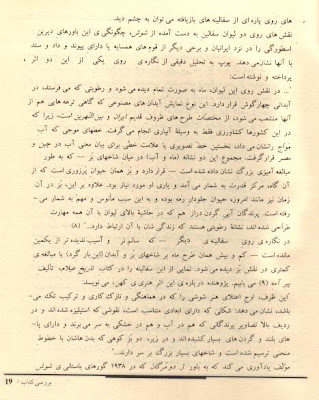 های روی پاره‌ای از سفالینه‌های بازیافته می‌توان به چشم دید.
نقش‌های روی دو لیوان سفالین به دست آمده از شوش، چگونگی‌ی این باورهای دیرین
اسطورگی را در نزد ایرانیان و برخی دیگر از قوم‌های همسایه یا دارای پیوند و داد و ستد
با آنها نشان‌می‌دهد. پوپ به تحلیل دقیقی از نگاره‌ی روی یکی از این دو اثر
پرداخته و نوشته‌است:
"... در نقش روی این لیوان، ماه به صورت تمام دیده می‌شود و رطوبتی که می‌فرستد، در
آبدانی چهارگوش قرار دارد. این نوع نمایش آبدان‌های مصنوعی که گاهی ترعه‌هایی هم از
آنها منشعب می‌شود، از مختصات طرح‌های ظروف قدیم ایران و بین‌النهرین است، زیرا که
در این کشورها کشاورزی فقط به وسیلهٔ آبیاری انجام می‌گرفت. خط‌های موجی که آب
مواج رانشان می‌داد، نخستین خط تصویری یا علامت خطی برای بیان معنی آب در چین و
مصر قرارگرفت. مجموع این دو نشانه (ماه و آب) در میان شاخهای بز — که به طور
مبالغه آمیزی بزرگ نشان داده شده است — قرار دارد و بز همان حیوان پرزوری است که از
آن گاه، مرکز قدرت به شمار می‌آمد و یاری او مورد نیاز بود. علاوه بر این، بز در آن
زمان نیز مانند امروز، حیوان جلودار رمه بوده و به این سبب مأنوس و مهم به شمار می-
رفته است. پرندگان آبی گردن دراز هم که در حاشیهٔ بالای لیوان با آن همه مهارت
طراحی شده‌اند، نشانهٔ رطوبتی هستند که زندگی شان با آن ارتباط دارد..." (۸)
در نگاره‌ی روی سفالینه‌ی دیگر — که سالم‌تر و آسیب ندیده‌تر از یکمین
مانده است — کم و بیش همان طرح ماه بر شاخهای بز و آبدان (این بار گرد) با مبالغه‌ی
کمتری در نقش بز دیده می‌شود. نمایی از این سفالینه را در کتاب تاریخ عیلام، تألیف
پیر آمه (۹) می‌یابیم. پژوهنده درباره‌ی این اثر هنری‌ی کهن، می‌نویسد:
"این ظرف، اوج اعتلای هنر شوشی را که در هماهنگی و نازک کاری و ترکیب تک می-
باشد، نشان می‌دهد: شکلی که دارای ابعادی متناسب است، نقوشی که استیلیزه شده‌اند و در
ردیف بالا تصاویر پرندگانی که هم در آب و هم در خشکی به سر می‌برند و دارای پا-
های بلند و گردن های بسیار کشیده‌اند و در زیر، دو بز کوهی که بدن هاشان با خطوط
منحنی ترسیم شده‌است و شاخهای بسیار بزرگ بر سر دارند."
مؤلف یادآوری می‌کند که به باور ل. دومرگان که در ۱۹۳۸ گورهای باستانی‌ی شوش
بررسی کتاب / 19